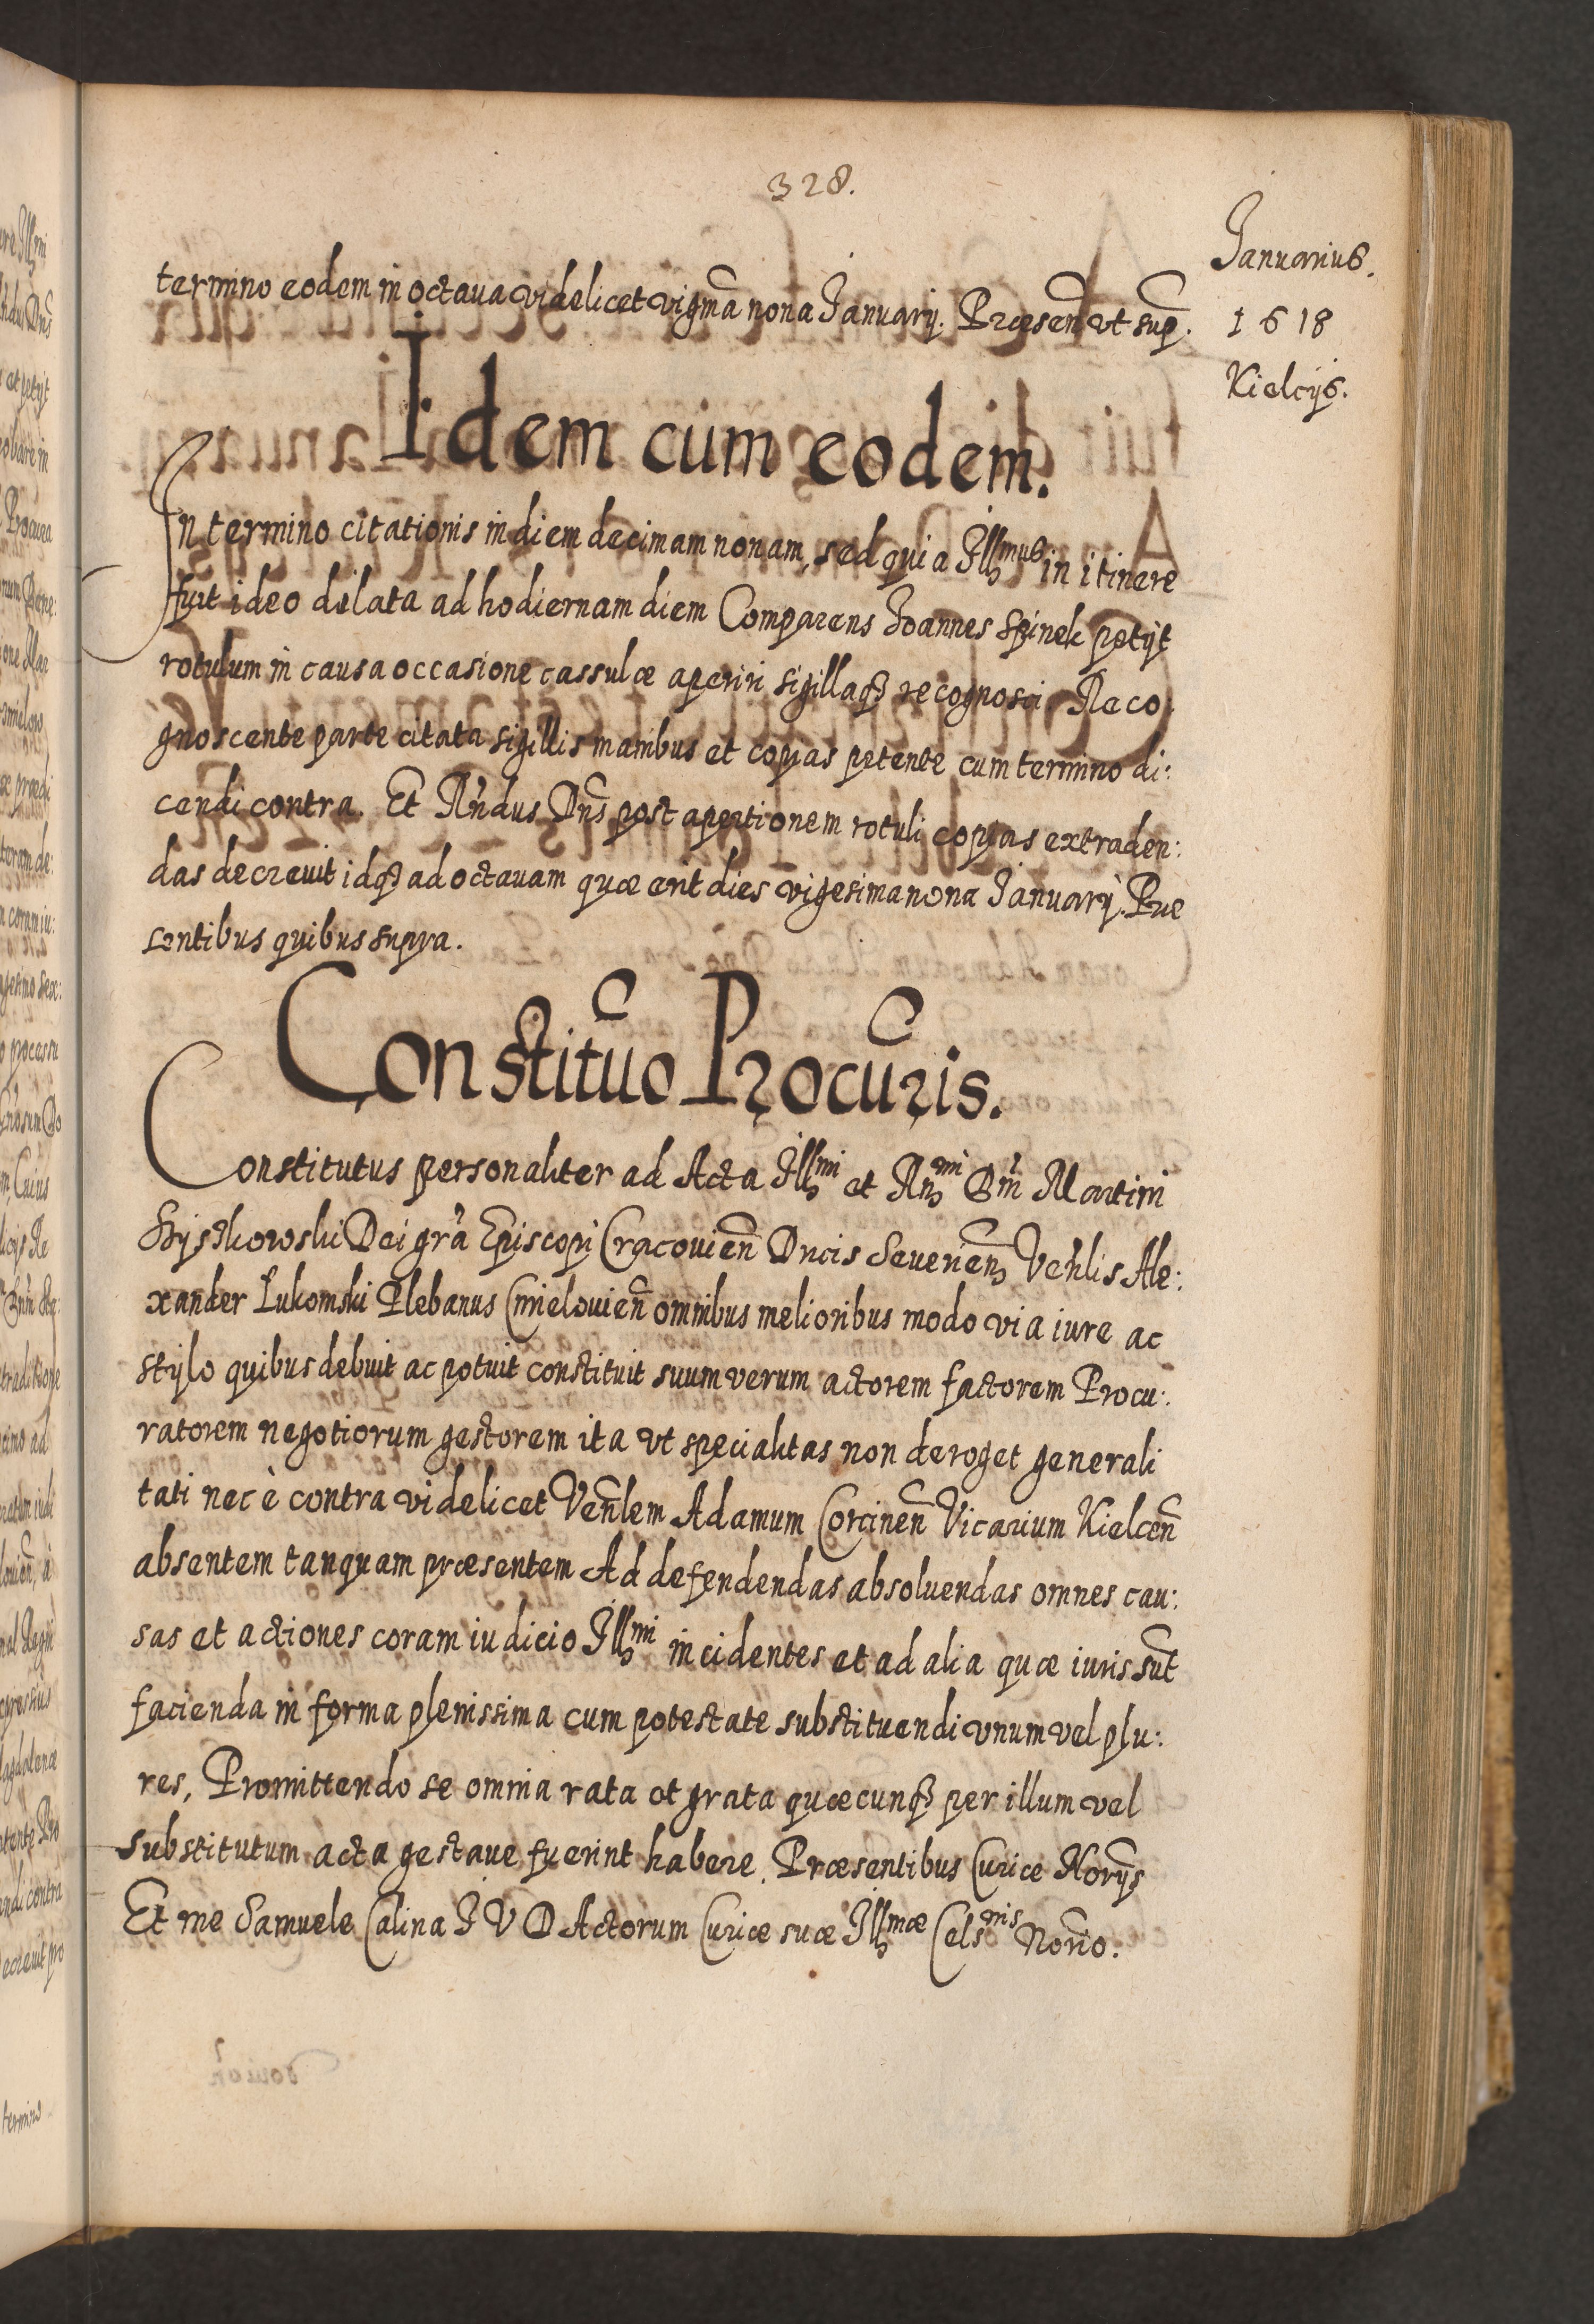 328.
Januarius.
1618
Kielcijs.
termino eodem in octaua videlicet vigm̃a nona Januarij. Præsen̄ vt sup̄.
Idem cum eodem.
In termino citationis in diem decimam nonam, sed quia Illmus in itinere
fuit ideo delata ad hodiernam diem Comparens Joannes Spinek petijt
rotulum in causa occasione cassulæ aperiri sigillaqȝ recognosci Reco.
gnoscente parte citata sigillis manibus et copias petente cum termino di:
cendi contra. Et Rn̄dus Dn̄s post apertionem rotuli copias extraden:
das decreuit idqȝ ad octauam quæ erit dies vigesima nona Januarij. Præ
sentibus quibus supra.
Constitũo Procũris.
Constitutus personaliter ad Acta Illmi et Rn̄mi Dn̄i Martini
Szyszkowski Dei grã Episcopi Cracouien̄ Ducis Seuerien̄ Ven̄lis Ale:
xander Łukomski Plebanus Cmielouien̄ omnibus melioribus modo via iure ac
stylo quibus debuit ac potuit constituit suum verum actorem factorem Procu:
ratorem negotiorum gestorem ita vt specialitas non deroget generali
tati nec è contra videlicet Ven̄lem Adamum Corcinen̄ Vicarium Kielcen̄
absentem tanquam præsentem Ad defendendas absoluendas omnes cau:
sas et actiones coram iudicio Illmi incidentes et ad alia quæ iuris sũt
facienda in forma plenissima cum potestate substituendi vnum vel plu:
res, Promittendo se omnia rata et grata quæcunqȝ per illum vel
substitutum acta gestaue fuerint habere. Præsentibus Curiæ Norĩjs
Et me Samuele Calina J V D Actorum Curiæ suæ Illmæ Celsnis Norĩo.